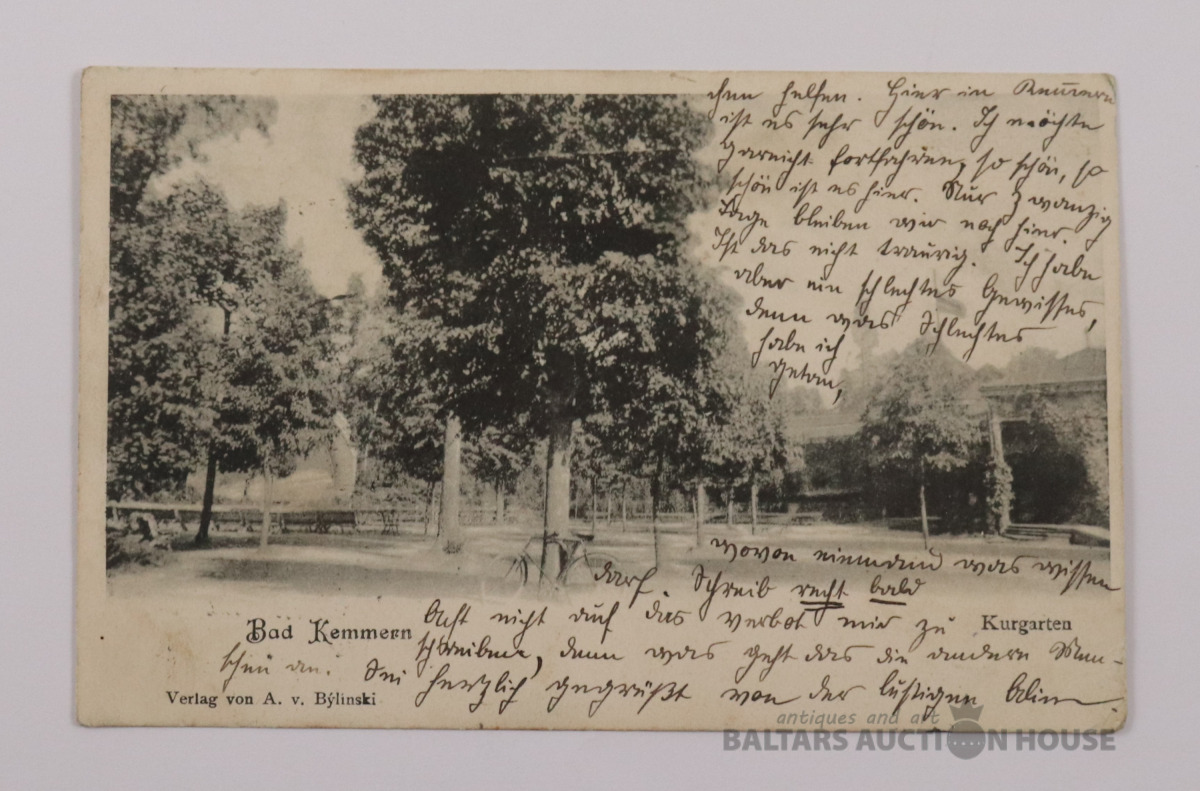 chen helfen. Hier in Kemmern
ist es sehr schön. Ich möchte
garnicht fortfahren, so schön, so
schön ist es hier. Nur zwanzig
Tage bleiben wir noch hier.
Ist das nicht traurig. Ich habe
aber ein schlechtes Gewissen,
denn was Schlechtes
habe ich
getan,
wovon niemand was wissen
darf. Schreib recht bald
Acht nicht auf das verbot mir zu
schreiben, denn was geht das die andern Men-
schen an. Sei herzlich gegrüßt von der lustigen
Bad Kemmern
Kurgarten
Verlag von A. v. Bÿlinski
antiques and art
BALTARS AUCTION HOUSE